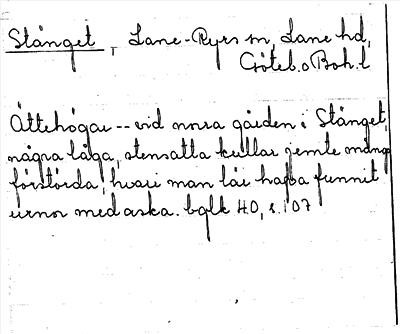 Stånget, Lane-Ryrs sn, Lane hd,
Göteb. o Boh. l
Ättehögar -- vid norra gården i Stånget,
några låga, stensatta kullar jemte många
förstörda, hvari man lär hafva funnit
urnor med aska. bglk HO, s. 107